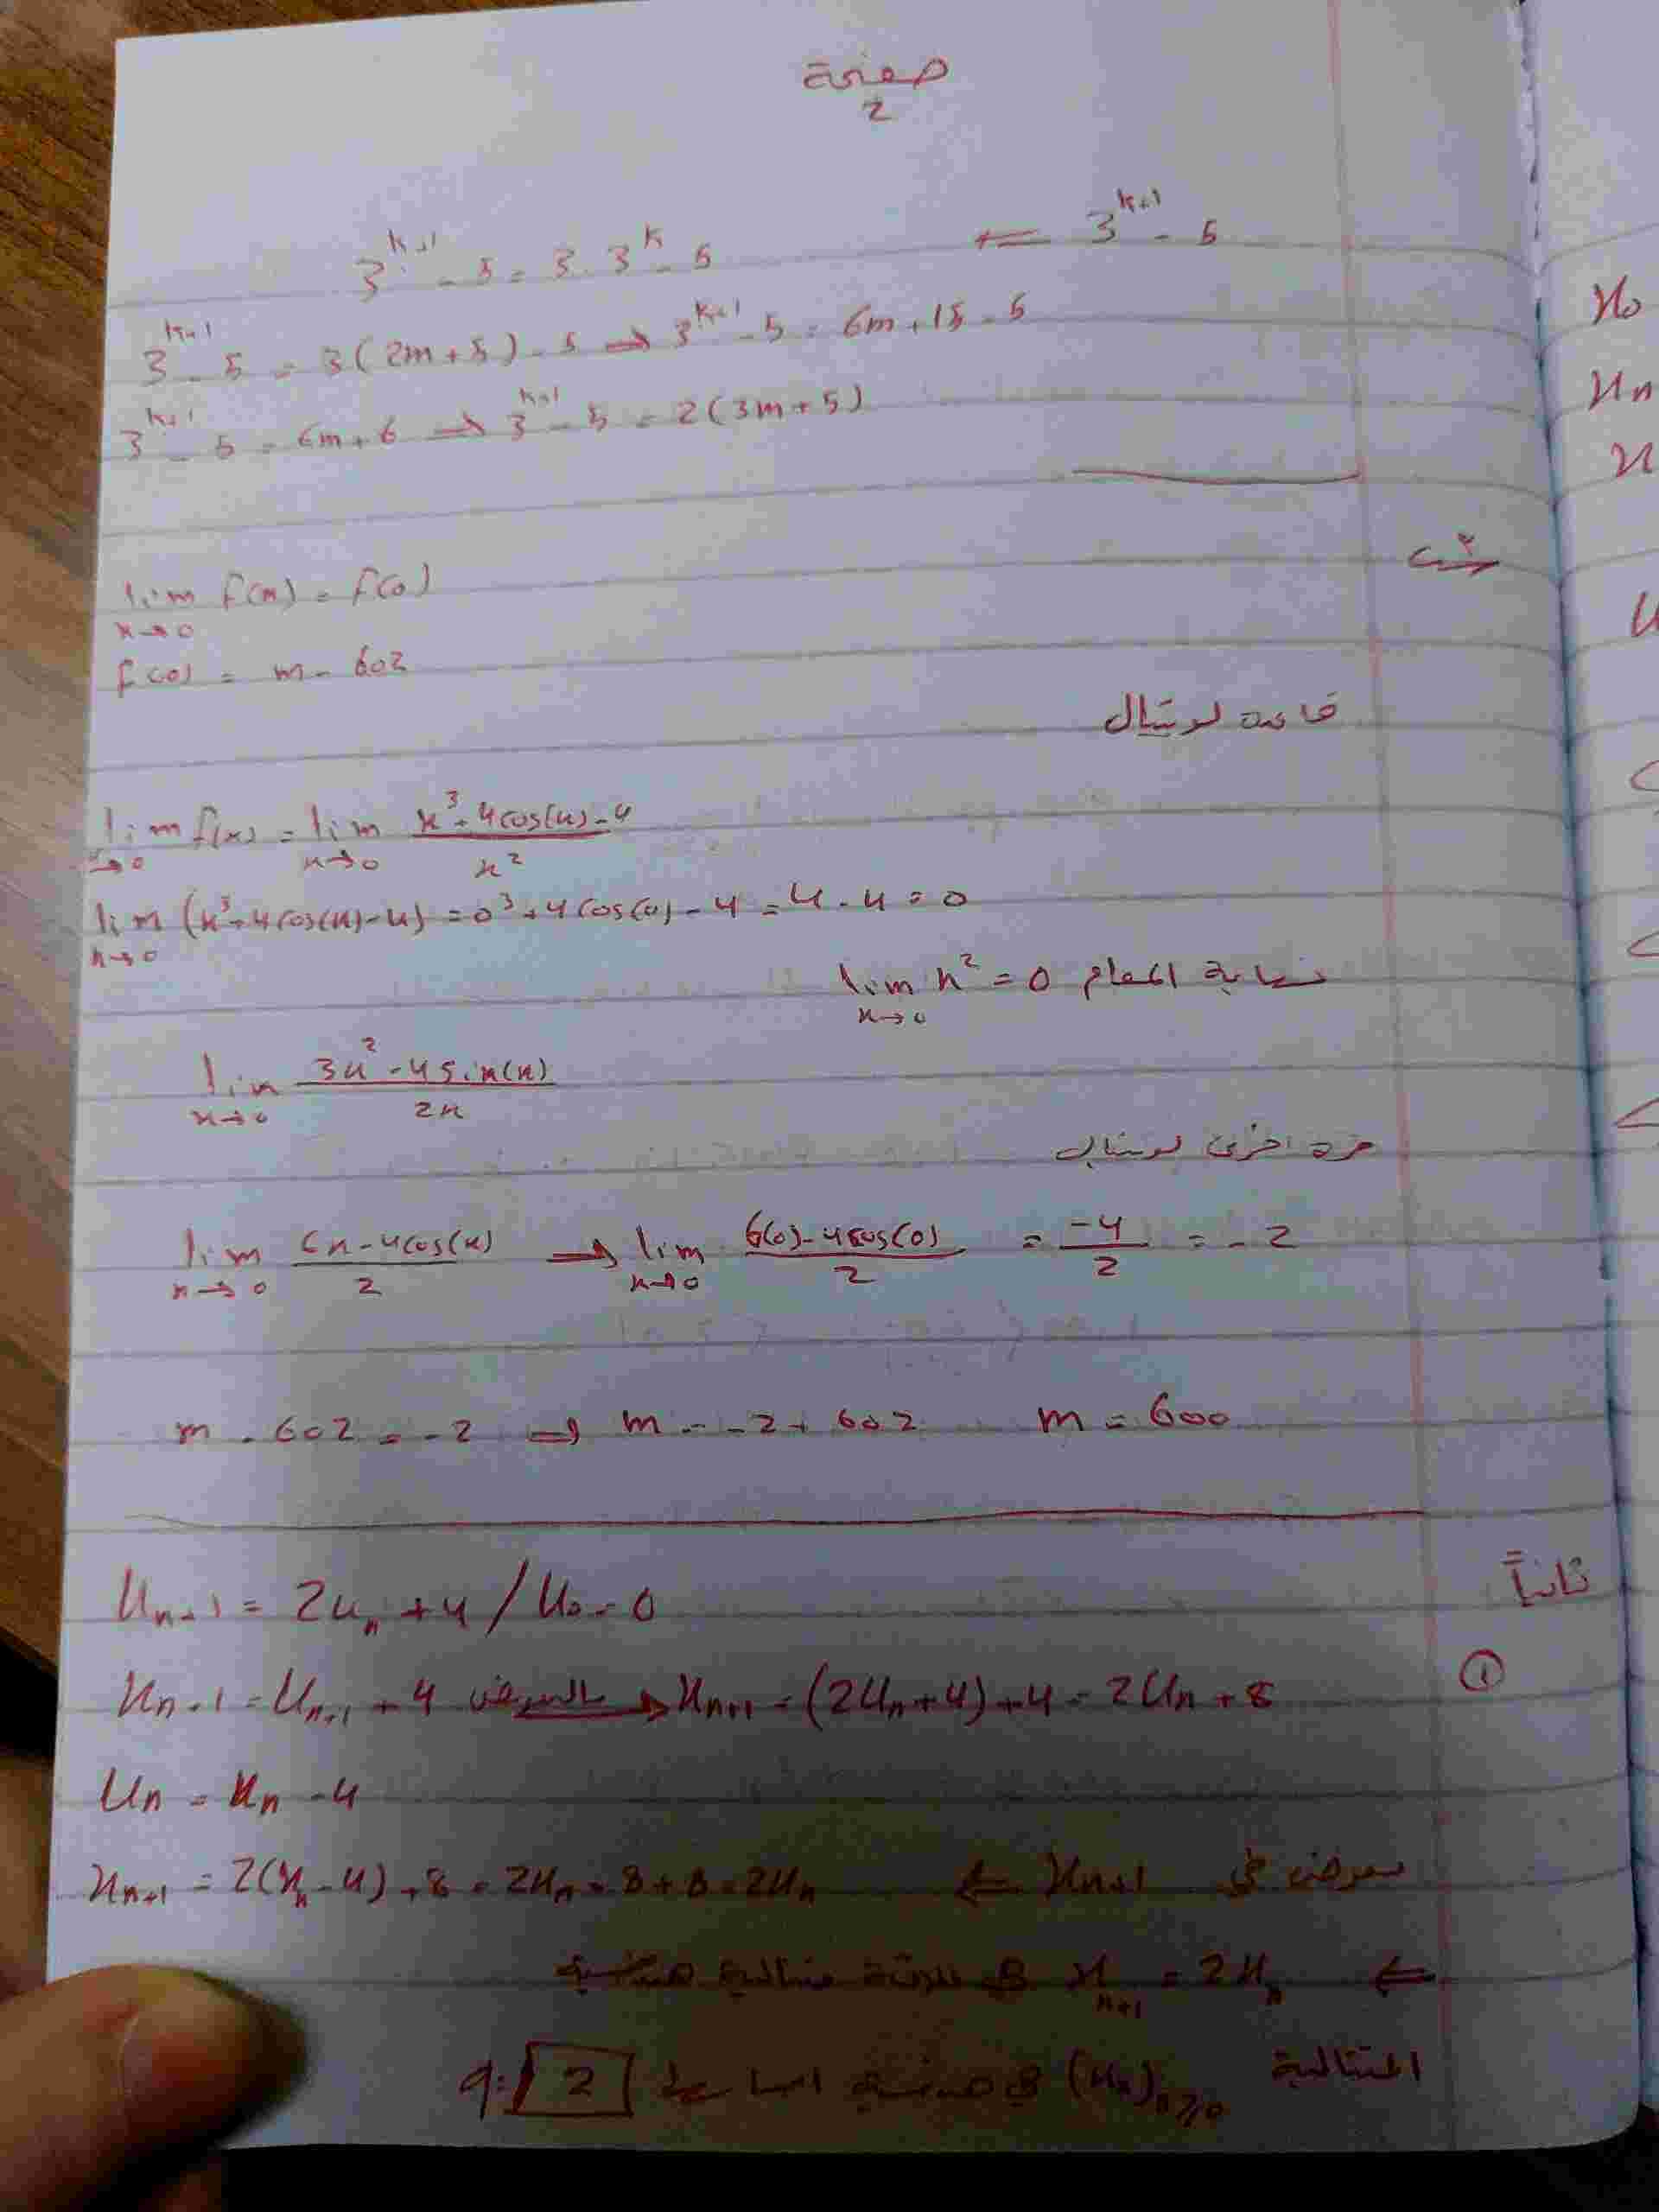 صفحة
2
3^{k+1} - 5 = 3 . 3^k - 5 ⟸ 3^{k+1} - 5
3^{k+1} - 5 = 3(2m+5) - 5 ⟹ 3^{k+1} - 5 = 6m + 15 - 5
3^{k+1} - 5 = 6m + 6 ⟹ 3^{k+1} - 5 = 2(3m+5)
lim_{x→0} f(x) = f(0)
f(0) = m - 602
قاعدة لوبيتال
lim_{x→0} f(x) = lim_{x→0} \frac{x^3 + 4cos(x) - 4}{x^2}
lim_{x→0} (x^3 + 4cos(x) - 4) = 0^3 + 4cos(0) - 4 = 4 - 4 = 0
نهاية المقام lim_{x→0} x^2 = 0
lim_{x→0} \frac{3x^2 - 4sin(x)}{2x}
مرة اخرى لوبيتال
lim_{x→0} \frac{6x - 4cos(x)}{2} ⟹ lim_{x→0} \frac{6(0) - 4cos(0)}{2} = \frac{-4}{2} = -2
m - 602 = -2 ⟹ m = -2 + 602 m = 600
ثانياً
U_{n+1} = 2u_n + 4 / U_0 = 0
① x_{n+1} = U_{n+1} + 4 بالتعويض ⟹ x_{n+1} = (2U_n + 4) + 4 = 2U_n + 8
U_n = x_n - 4
نعوض في x_{n+1} ⟸ x_{n+1} = 2(x_n - 4) + 8 = 2x_n - 8 + 8 = 2x_n
⟸ x_{n+1} = 2x_n متتالية هندسية
المتتالية (x_n)_{n≥0} هندسية اساسها q = 2